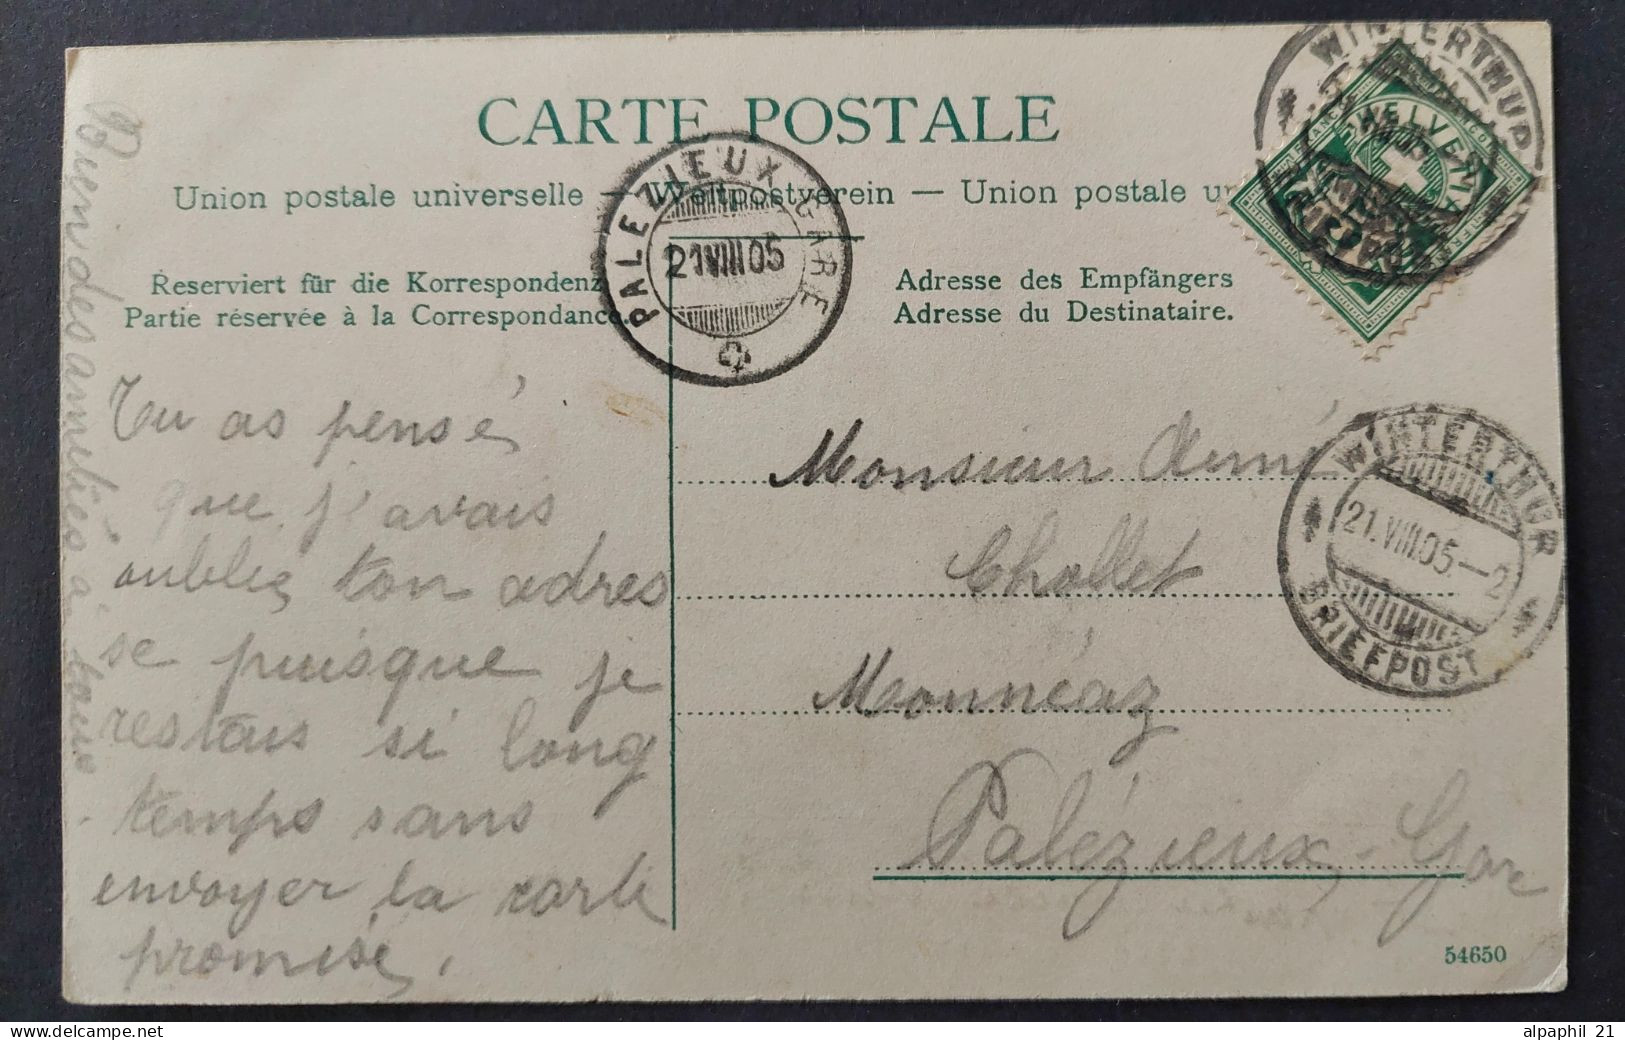 CARTE POSTALE
Union postale universelle — Weltpostverein — Union postale un
Reserviert für die Korrespondenz
Partie réservée à la Correspondance.
Adresse des Empfängers
Adresse du Destinataire.
PALEZIEUX GARE
21 VIII 05
WINTERTHUR
BRIEFPOST
HELVETIA
FRANCO
WINTERTHUR
21.VIII.05.-2
BRIEFPOST
Tu as pensé
que j'avais
oublié ton adres
se puisque je
restais si long
temps sans
envoyer la carte
promise.
Bien des amitiés à tous.
Monsieur Aimé
Chollet
Monnéaz
Palézieux-Gar
54650
alpaphil 21